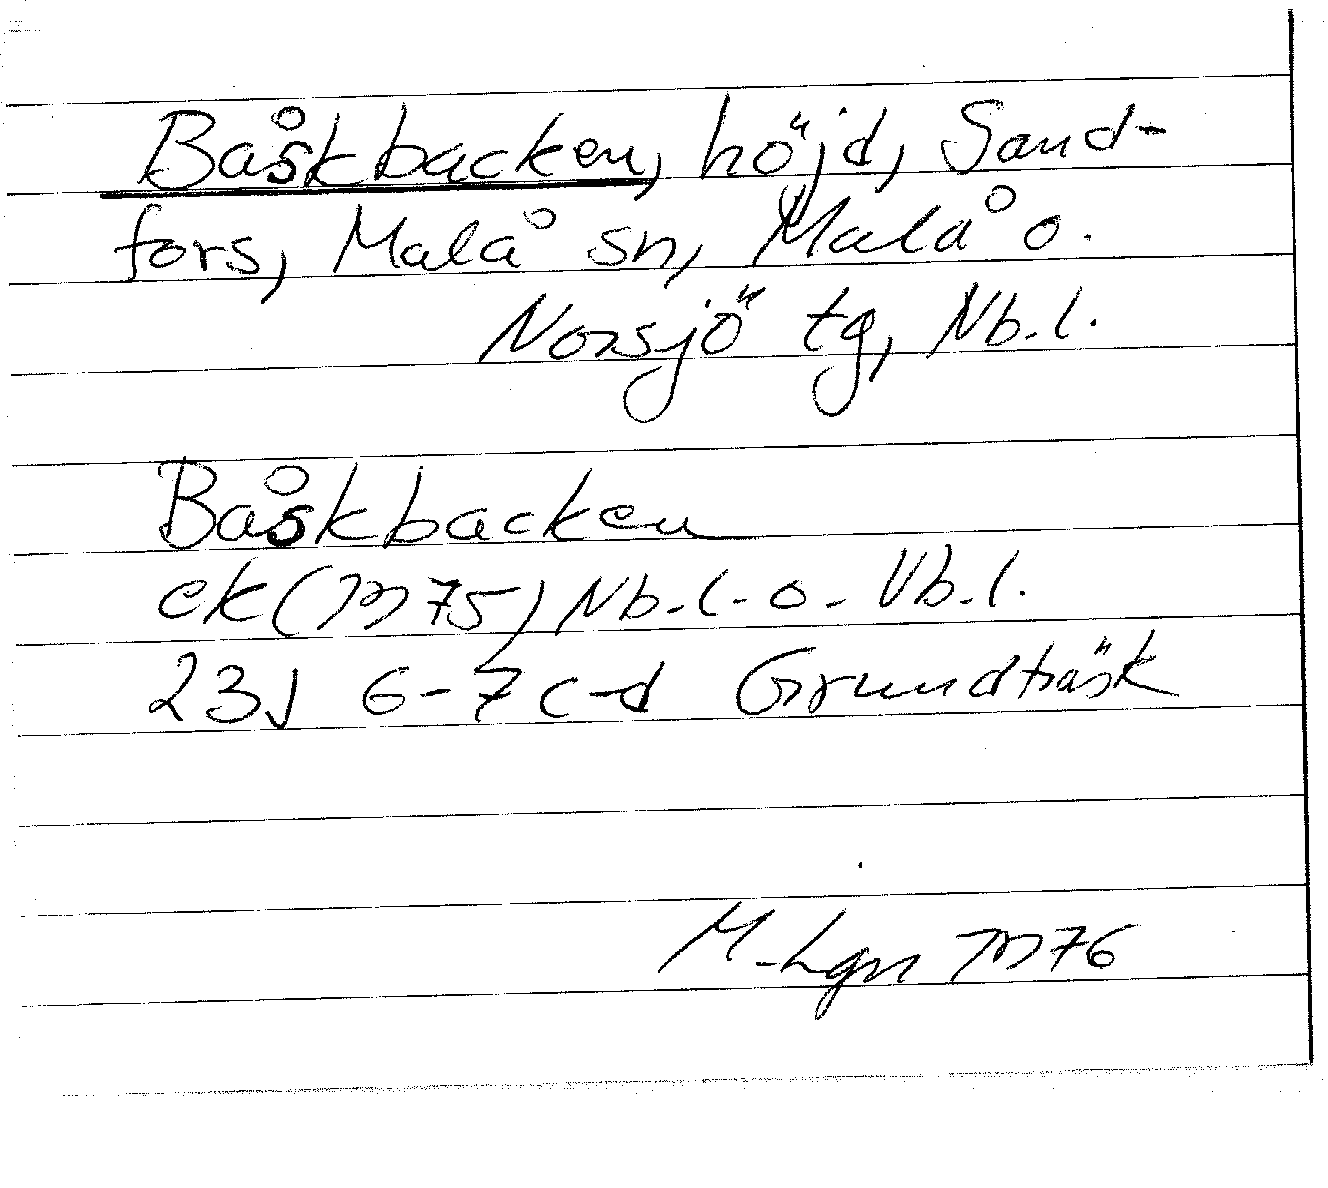 Båskbacken, höjd, Sand-
fors, Malå sn, Malå o.
Norsjö tg, Nb.l.
Båskbacken
ek (1975) Nb.l. o. Vb.l.
23J 6-7 c-d Grundträsk
M. Lgn 1976